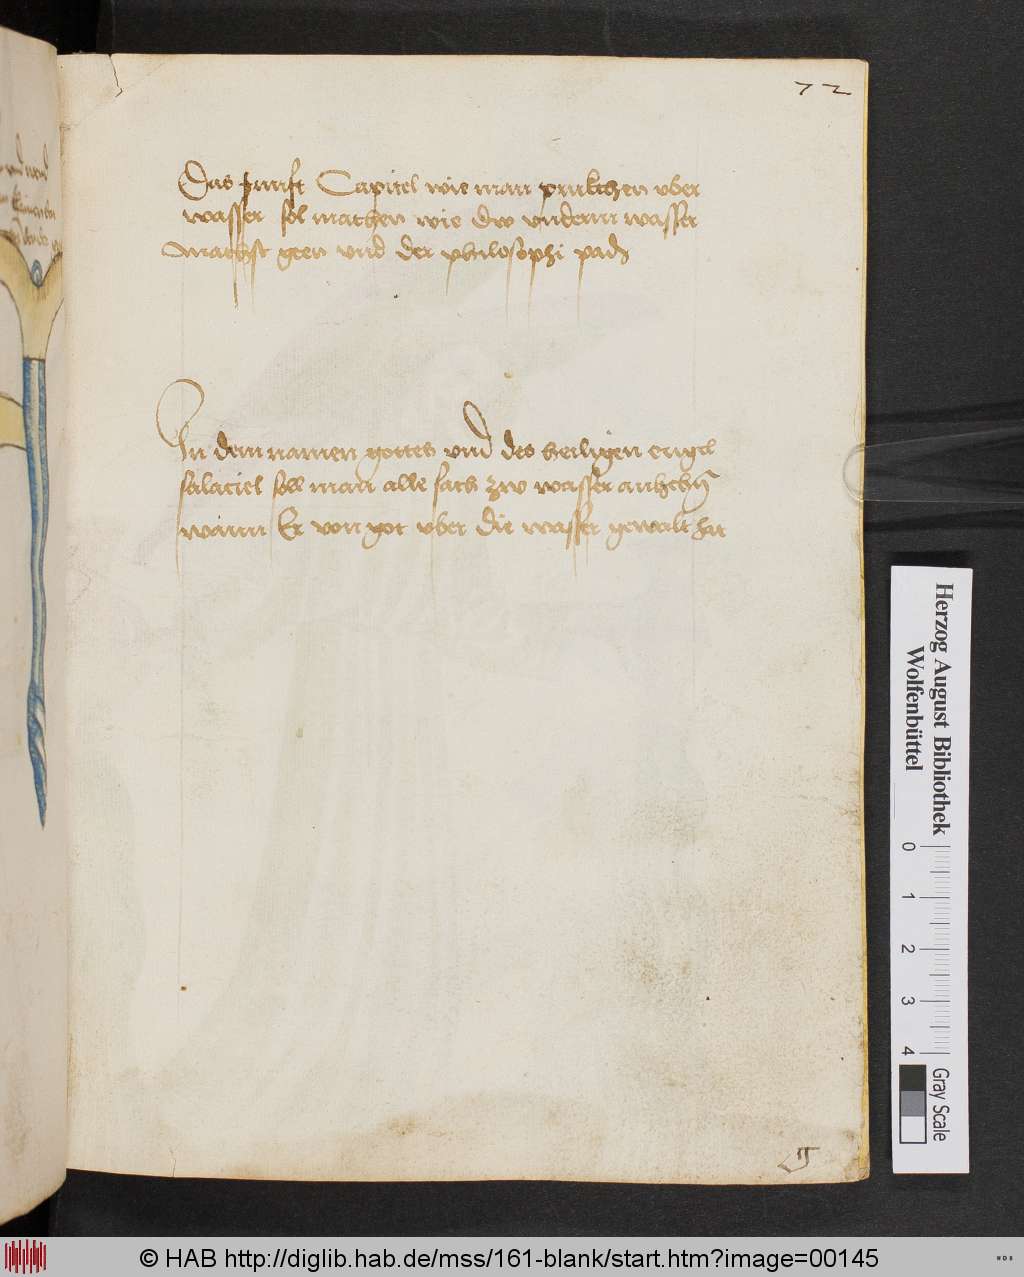 72
Das funfft Capitel wie man prukchen vber
wasser sol machen wie dw vnderm wasser
machst geen vnd der philosophi pad
In dem namen gottes vnd des heiligen engel
salaciel soll man alle sach zw wasser
wann Er von got vber die wasser gewalt hat
Herzog August Bibliothek
Wolfenbüttel
0 1 2 3 4
Gray Scale
© HAB http://diglib.hab.de/mss/161-blank/start.htm?image=00145